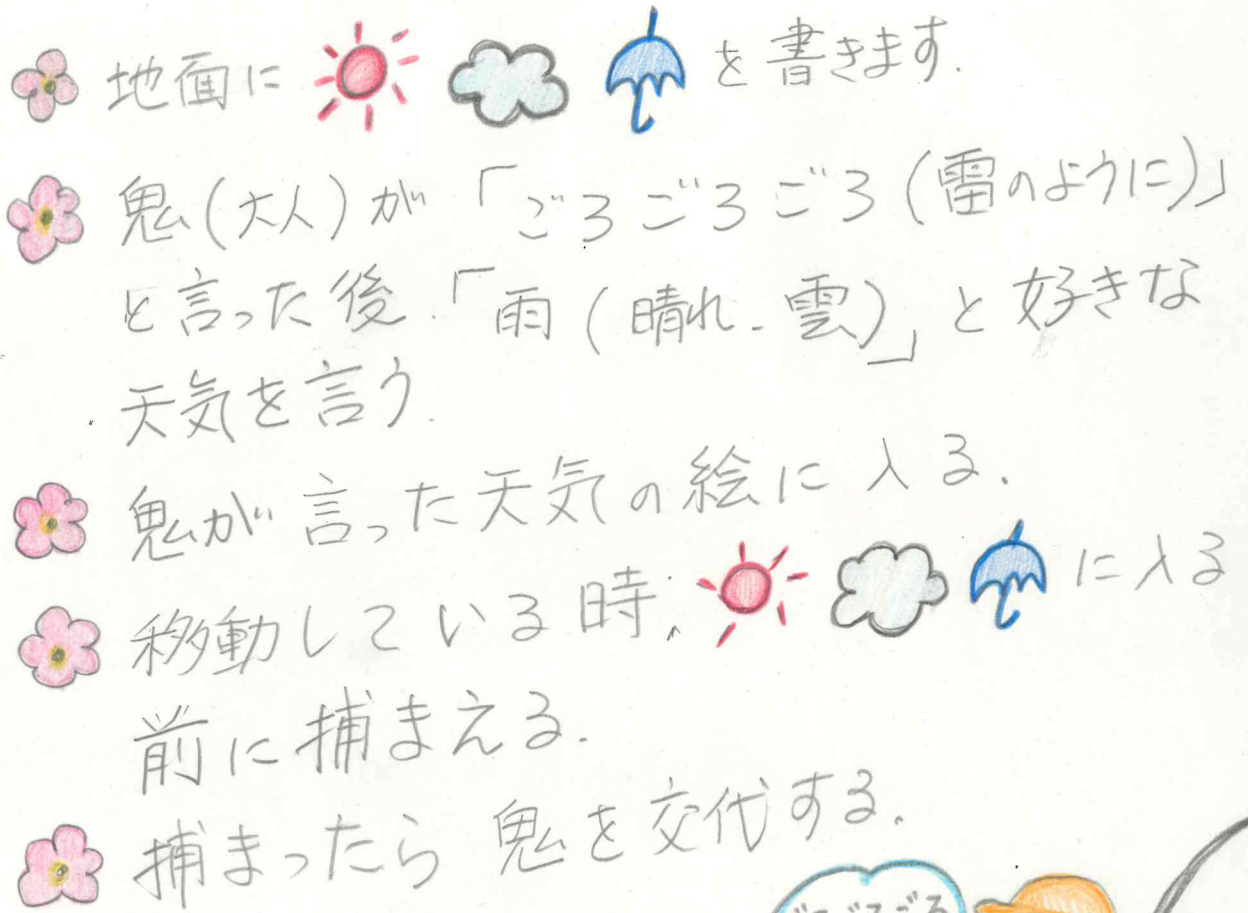 地面に を書きます.
鬼(大人)が「ごろごろごろ(雷のように)」
と言った後.「雨(晴れ.雲)」と好きな
天気を言う.
鬼が言った天気の絵に入る.
移動している時、 に入る
前に捕まえる.
捕まったら鬼を交代する.
ごろごろごろ